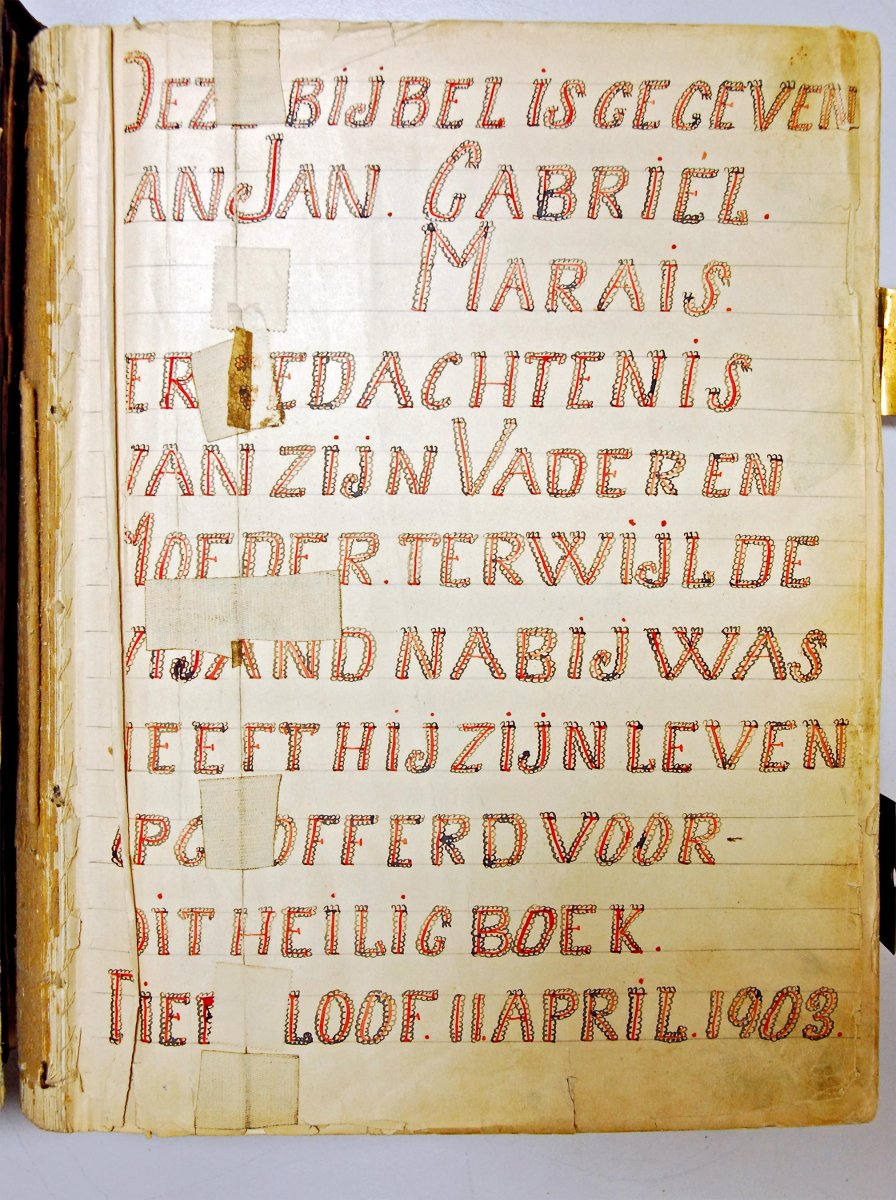 DEZE BIJBEL IS GEGEVEN
AAN JAN. GABRIEL.
MARAIS.
TER GEDACHTENIS
VAN ZIJN VADER EN
MOEDER. TERWIJL DE
VIJAND NABIJ WAS
HEEFT HIJ ZIJN LEVEN
OPGEOFFERD VOOR-
DIT HEILIG BOEK.
LOOF. 11. APRIL. 1903.